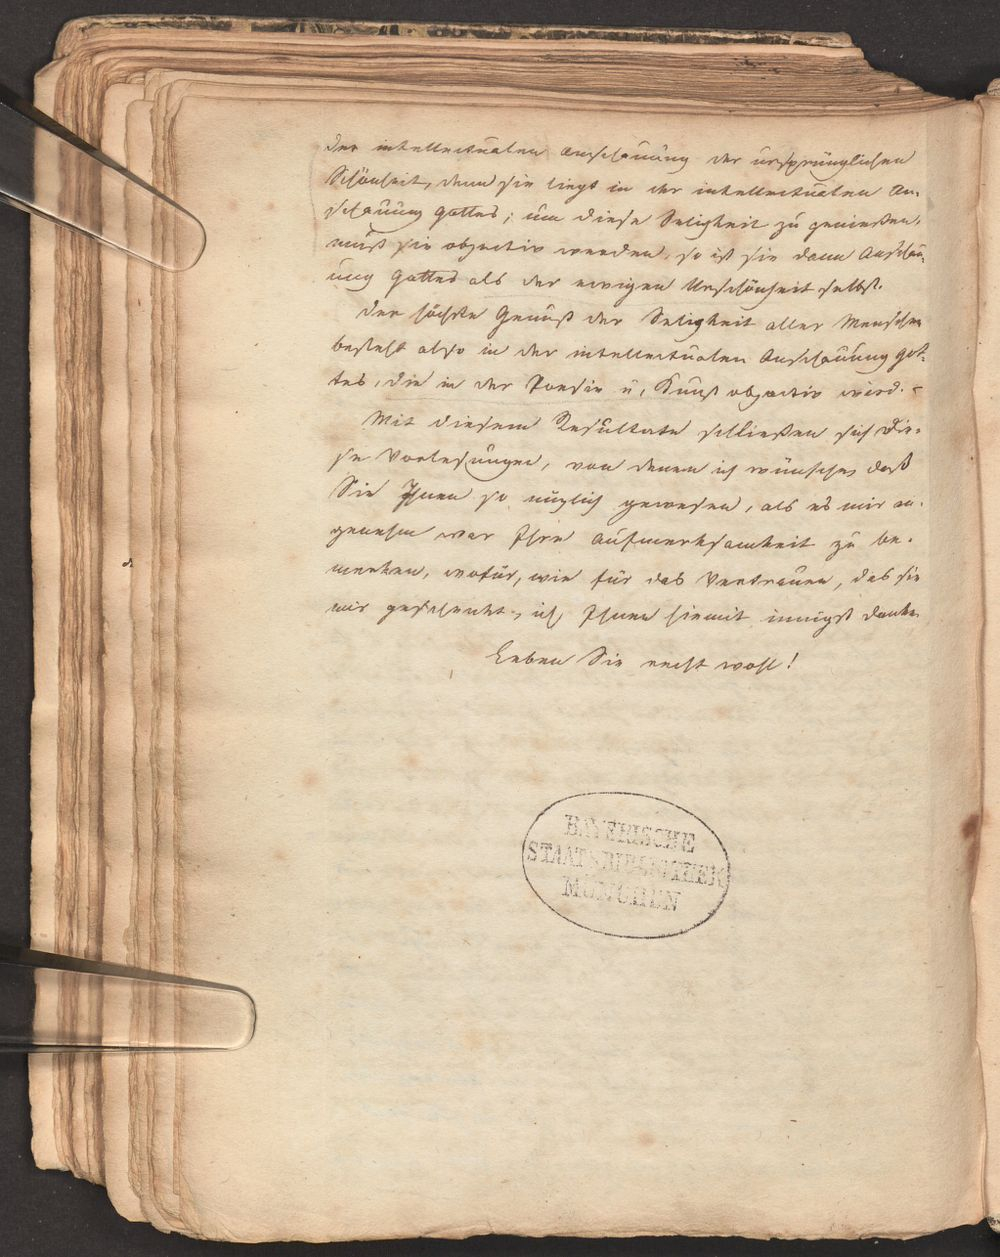 der intellectualen Anschauung der ursprünglichen
Schönheit, denn sie liegt in der intellectualen An-
schauung Gottes; um diese Seligkeit zu genießen,
muß sie objectiv werden, so ist sie dann Anschau-
ung Gottes als der ewigen Urschönheit selbst.
Der höchste Genuß der Seligkeit aller Menschen
besteht also in der intellectualen Anschauung Got-
tes, die in der Poesie u. Kunst objectiv wird. -
Mit diesem Resultate schließen sich die-
se Vorlesungen, von denen ich wünsche, daß
Sie Ihnen so nüzlich gewesen, als es mir an-
genehm war Ihre Aufmerksamkeit zu be-
merken, wofür, wie für das Vertrauen, das sie
mir geschenkt, ich Ihnen hiemit innigst danke.
Leben Sie recht wohl!
BAYERISCHE
STAATSBIBLIOTHEK
MÜNCHEN